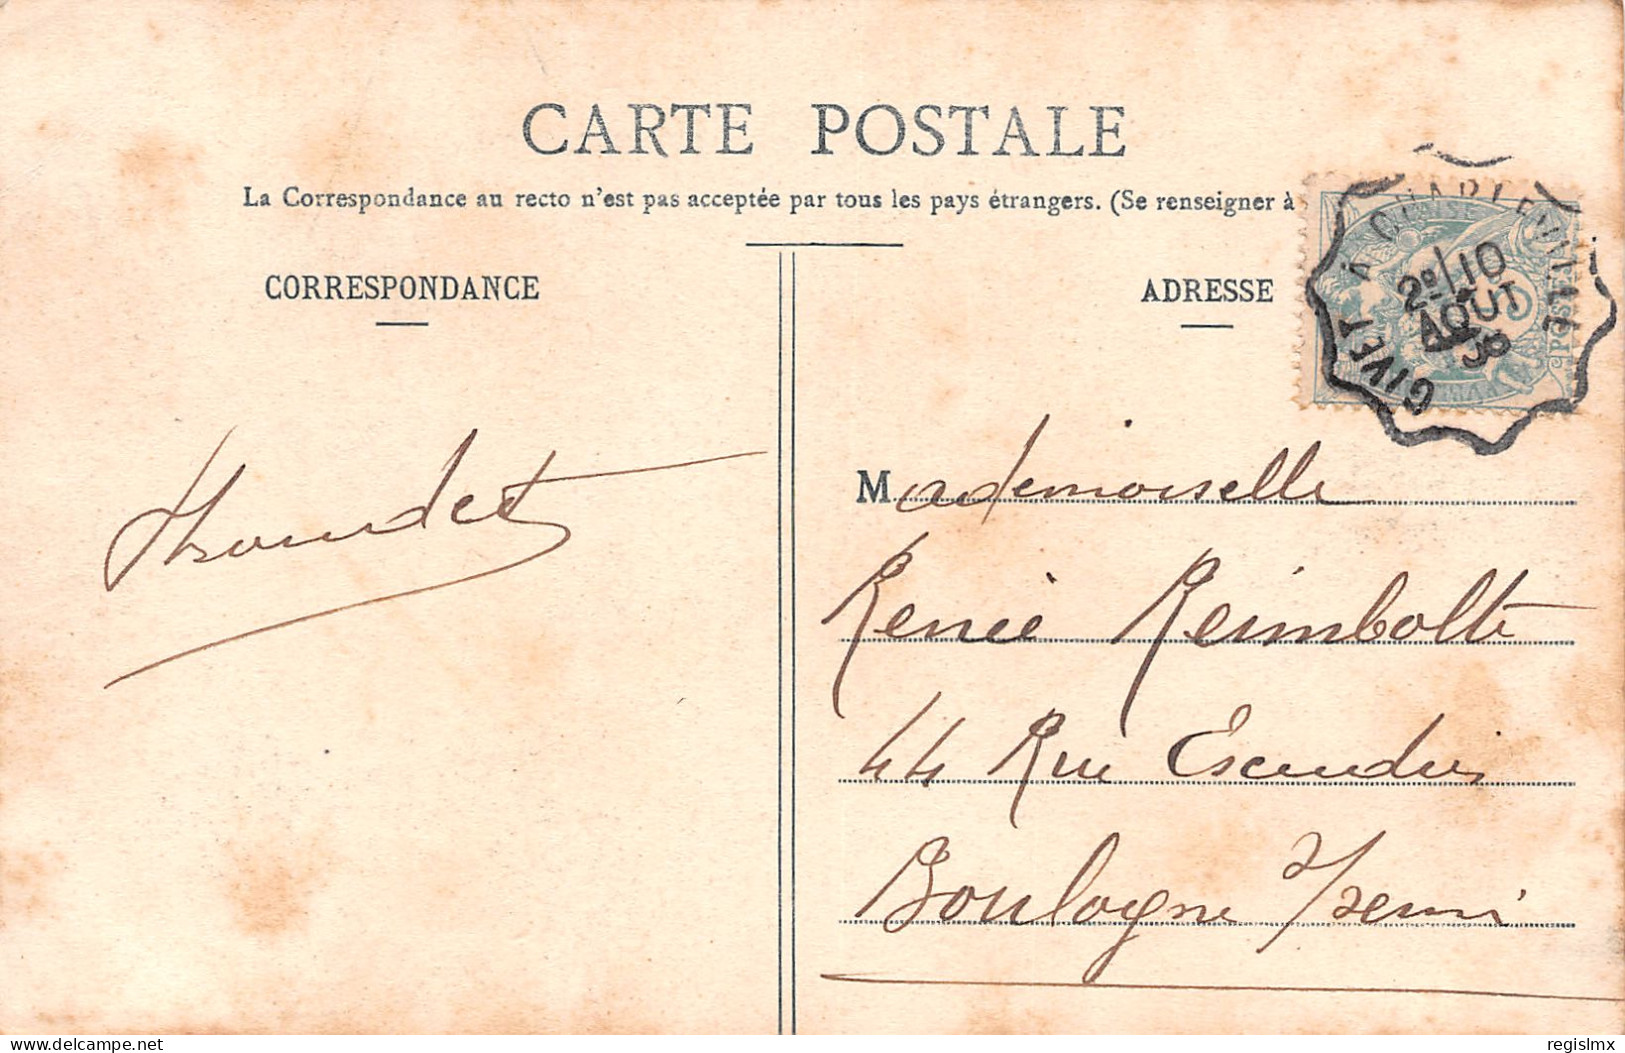 CARTE POSTALE
La Correspondance au recto n'est pas acceptée par tous les pays étrangers. (Se renseigner à
CORRESPONDANCE
ADRESSE
GIVET À CHARLEVILLE
2º/10
AOUT
08
POSTES
Mademoiselle
Renée Reimbolte
44 Rue Escudier
Boulogne s/Seine
delcampe.net
regislmx